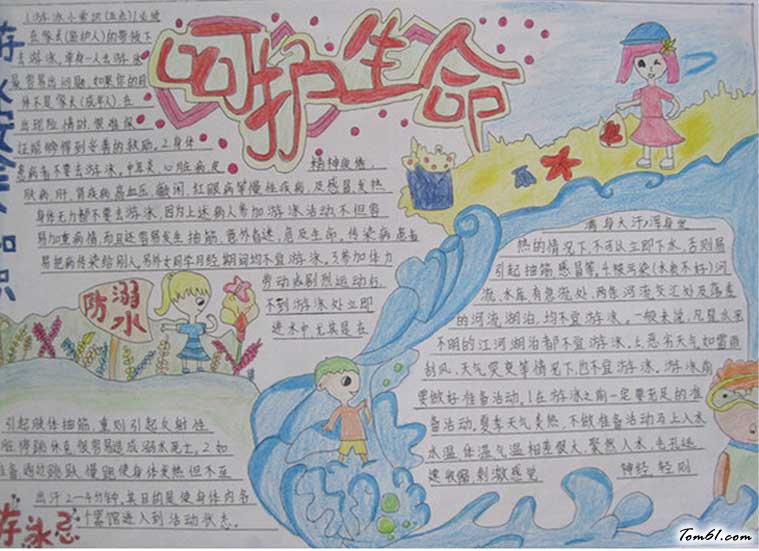 呵护生命
游泳安全知识
1游泳小常识(五点)1必须
在家长(监护人)的带领下
去游泳,单身一人去游泳
最容易出问题,如果你的同
伴不是家长(成年人),在
出现险情时,很难保
证能够得到妥善的救助,2.身体
患病者不要去游泳,中耳炎,心脏病,皮
肤病,肝.肾疾病,高血压.癫闲,红眼病等慢性疾病,及感冒,发热
精神疲倦,
身体无力都不要去游泳,因为上述病人参加游泳活动,不但容
易加重病情,而且还容易发生抽筋,意外昏迷,危及生命,传染病患者
易把病传染给别人,另外女同学月经期间均不宜游泳,3参加体力
劳动或剧烈运动后,
不到游泳处立即
进水中,尤其是在
满身大汗,浑身发
热的情况下不可以立即下水,否则易
引起抽筋感冒等,4.被污染(水质不好)河
流,水库,有急流处,两条河流交汇处及落差
的河流湖泊,均不宜游泳,一般来说,凡是水里
不明的江河湖泊都不宜游泳,5.恶劣天气如雷雨
刮风、天气突变等情况下,也不宜游泳,游泳前
要做好准备活动,1在游泳之前一定要充足的准
备活动,夏季天气炎热,不做准备活动马上入水
水温、体温气温相差很大,聚然入水,毛孔迅
速收缩,刺激感觉
神经,轻则
防溺水
引起肢体抽筋,重则引起反射性
脏停跳休克,很容易造成溺水死亡,2如
准备通过跳跃,慢跑使身体发热但不至
出汗2-4分钟,其目的是使身体内各
个器官进入到活动状态。
游泳忌
Tom61.com